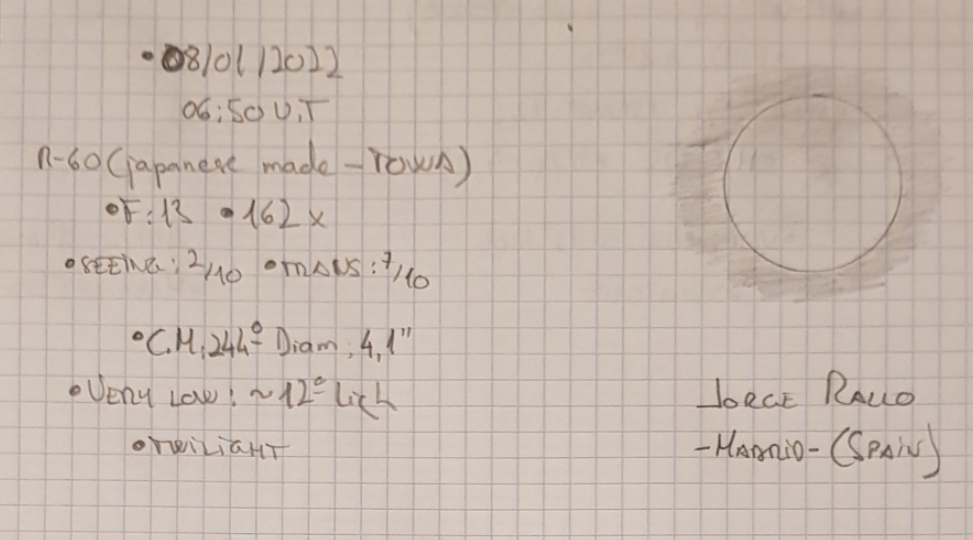 •08/01/2022
06:50 U.T
R-60 (japanese made - TOWA)
•F:13 •162x
•SEEING: 2/10 •TRANS: 7/10
•C.M: 244º Diam: 4,1"
•VERY LOW: ~12º high
•TWILIGHT
JORGE RALLO
-MADRID- (SPAIN)